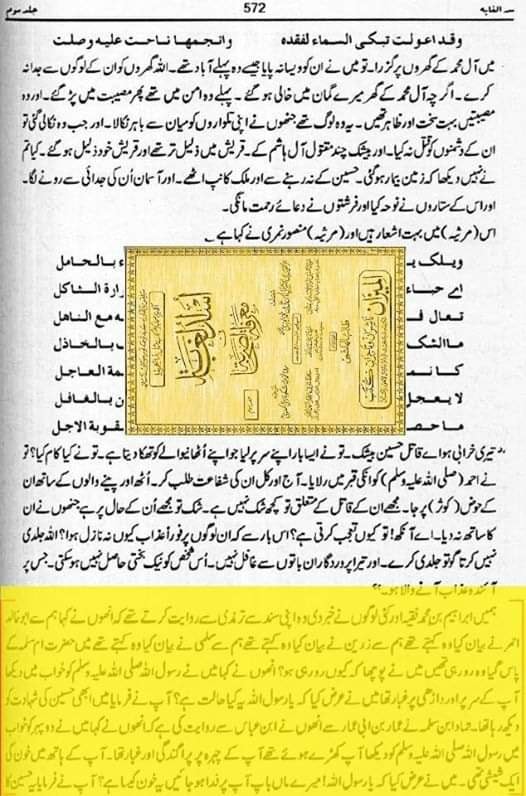 جلد سوم
572
ـد الغابہ
وقد اعولت تبكي السماء لفقده وانجمها ناحت عليه وصلت
میں آل محمد کے گھروں پر گزرا۔ تو میں نے ان کو ویسا نہ پایا جیسے وہ پہلے آباد تھے۔ اللہ گھروں کو ان کے لوگوں سے جدا نہ
کرے۔ اگرچہ آل محمد کے گھر میرے گمان میں خالی ہوگئے۔ پہلے وہ امن میں تھے پھر مصیبت میں پڑ گئے۔ اور وہ
مصیبتیں بہت سخت اور ظاہر تھیں۔ یہ وہ لوگ تھے جنھوں نے اپنی تلواروں کو میان سے باہر نکالا۔ اور جب وہ نکالی گئی تو
ان کے دشمنوں کو قتل نہ کیا۔ اور بیشک چند مقتول آل ہاشم کے۔ قریش میں ذلیل تر تھے اور قریش خود ذلیل ہوگئے۔ کیا تم
نے نہیں دیکھا کہ زمین بیمار ہوگئی۔ حسین کے نہ رہنے سے اور ملک کانپ اٹھے۔ اور آسمان اُن کی جدائی سے رونے لگا۔
اور اس کے ستاروں نے نوحہ کیا اور فرشتوں نے دعائے رحمت مانگی۔
اس (مرثیہ) میں بہت اشعار ہیں اور (مرثیہ) منصور نمری نے کہا ہے
ويلك يا ء بالحامل
اى حباء رارة الثاكل
تعال ف ـه مع الناهل
ما الشك ب بالخاذل
كانما ـمة العاجل
لا يعجل ن بالغافل
ما حصـ ـقوبة الاجل
اسد الغابہ
معرفۃ الصحابہ
المیزان
تیری خرابی ہو اے قاتل حسین بیشک۔ تو نے ایسا بار اپنے سر پر لیا جو اپنے اُٹھانیوالے کو تھکا دیتا ہے۔ تو نے کیا کام کیا؟ تو
نے احمد (صلی اللہ علیہ وسلم) کو انکی قبر میں رلایا۔ آج اور کل ان کی شفاعت طلب کر۔ اُٹھ اور پینے والوں کے ساتھ ان
کے حوض (کوثر) پر جا۔ مجھے ان کے قاتل کے متعلق تو کچھ شک نہیں ہے۔ شک تو مجھے اُن کے حال پر ہے جنھوں نے ان
کا ساتھ نہ دیا۔ اے آنکھ! تو کیوں تعجب کرتی ہے؟ اس بار سے کہ ان لوگوں پر فوراً عذاب کیوں نہ نازل ہوا؟ اللہ جلدی
نہیں کرتا گو تو جلدی کرے۔ اور تیرا پروردگار ان باتوں سے غافل نہیں۔ اُس شخص کو نیک بختی حاصل نہیں ہوسکتی۔ جس پر
آئندہ عذاب آنے والا ہو۔
ہمیں ابراہیم بن محمد فقیہ اور کئی لوگوں نے خبر دی وہ اپنی سند سے ترمذی سے روایت کرتے تھے کہ انھوں نے کہا ہم سے ابوخالد
احمر نے بیان کیا وہ کہتے تھے ہم سے زرین نے بیان کیا وہ کہتے تھے ہم سے سلمی نے بیان کیا وہ کہتے تھے میں حضرت ام سلمہ کے
پاس گیا وہ رو رہی تھیں میں نے پوچھا کہ کیوں رو رہی ہو؟ انھوں نے کہا میں نے رسول اللہ صلی اللہ علیہ وسلم کو خواب میں دیکھا
آپ کے سر پر اور داڑھی پر غبار تھا میں نے عرض کیا کہ یا رسول اللہ یہ کیا حالت ہے؟ آپ نے فرمایا میں ابھی حسین کی شہادت کو
دیکھ رہا تھا۔ حماد ابن سلمہ نے عمار بن ابی عمار سے انھوں نے ابن عباس سے روایت کی ہے کہ انھوں نے کہا میں نے دوپہر کو خواب
میں رسول اللہ صلی اللہ علیہ وسلم کو دیکھا آپ کھڑے ہوئے تھے آپ کے چہرہ پر پراگندگی اور غبار تھا۔ آپ کے ہاتھ میں خون کی
ایک شیشی تھی۔ میں نے عرض کیا کہ یا رسول اللہ! میرے ماں باپ آپ پر فدا ہو جائیں یہ خون کیسا ہے؟ آپ نے فرمایا یہ حسین کا